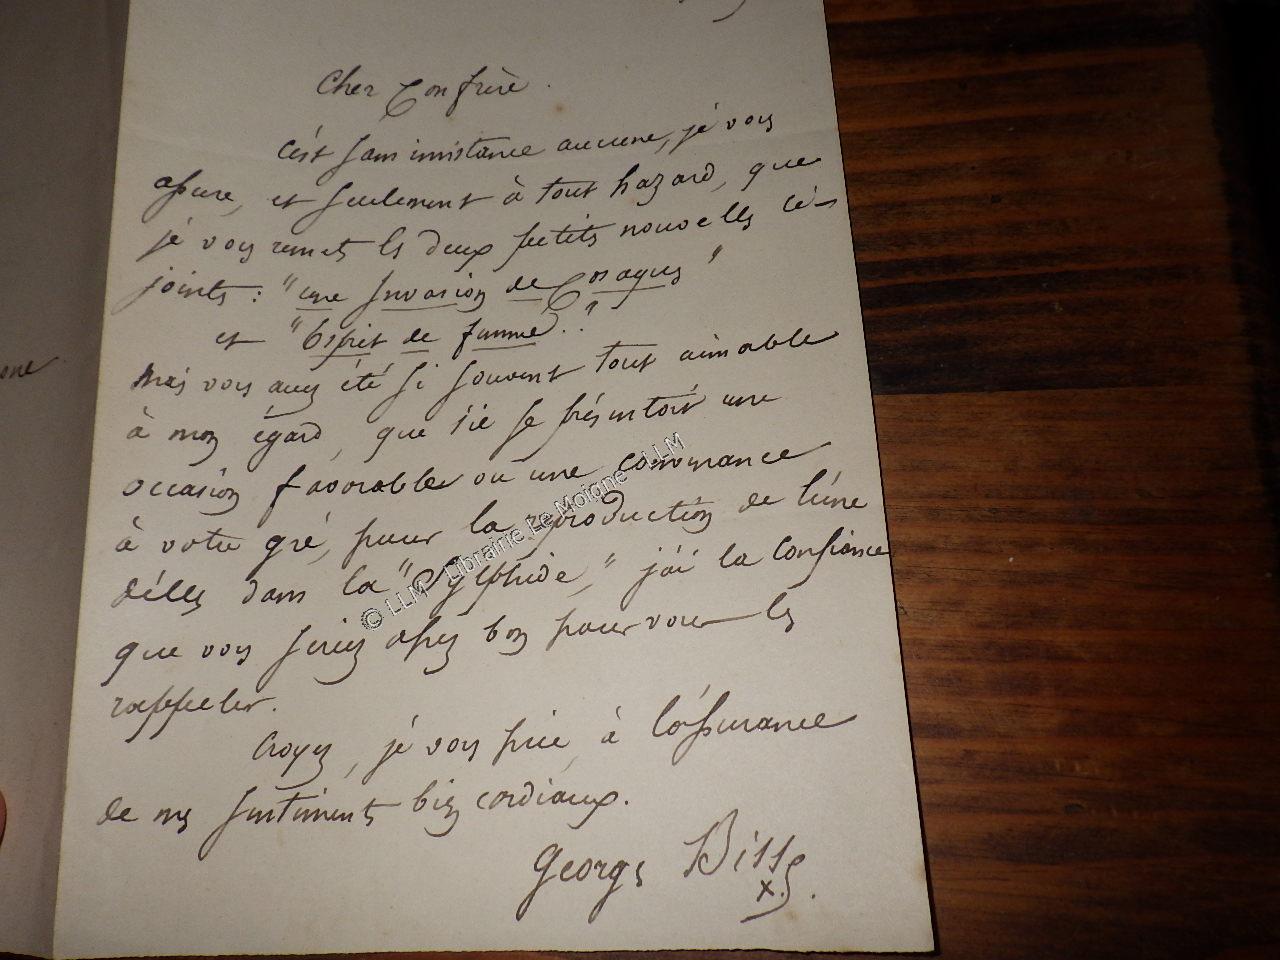 Cher Confrère.
C'est sans insistance aucune, je vous
assure, et seulement à tout hazard, que
je vous remets les deux petites nouvelles ci-
jointes : "une Invasion de Cosaques"
et "Esprit de femme".
Mais vous avez été si souvent tout aimable
à mon égard, que s'il se présentait une
occasion favorable ou une convenance
à votre gré, pour la reproduction de l'une
d'elles dans la "Sylphide," j'ai la confiance
que vous seriez assez bon pour vous les
rappeler.
Croyez, je vous prie, à l'assurance
de mes sentiments bien cordiaux.
Georges
© LLM - Librairie Le Moigne - LLM